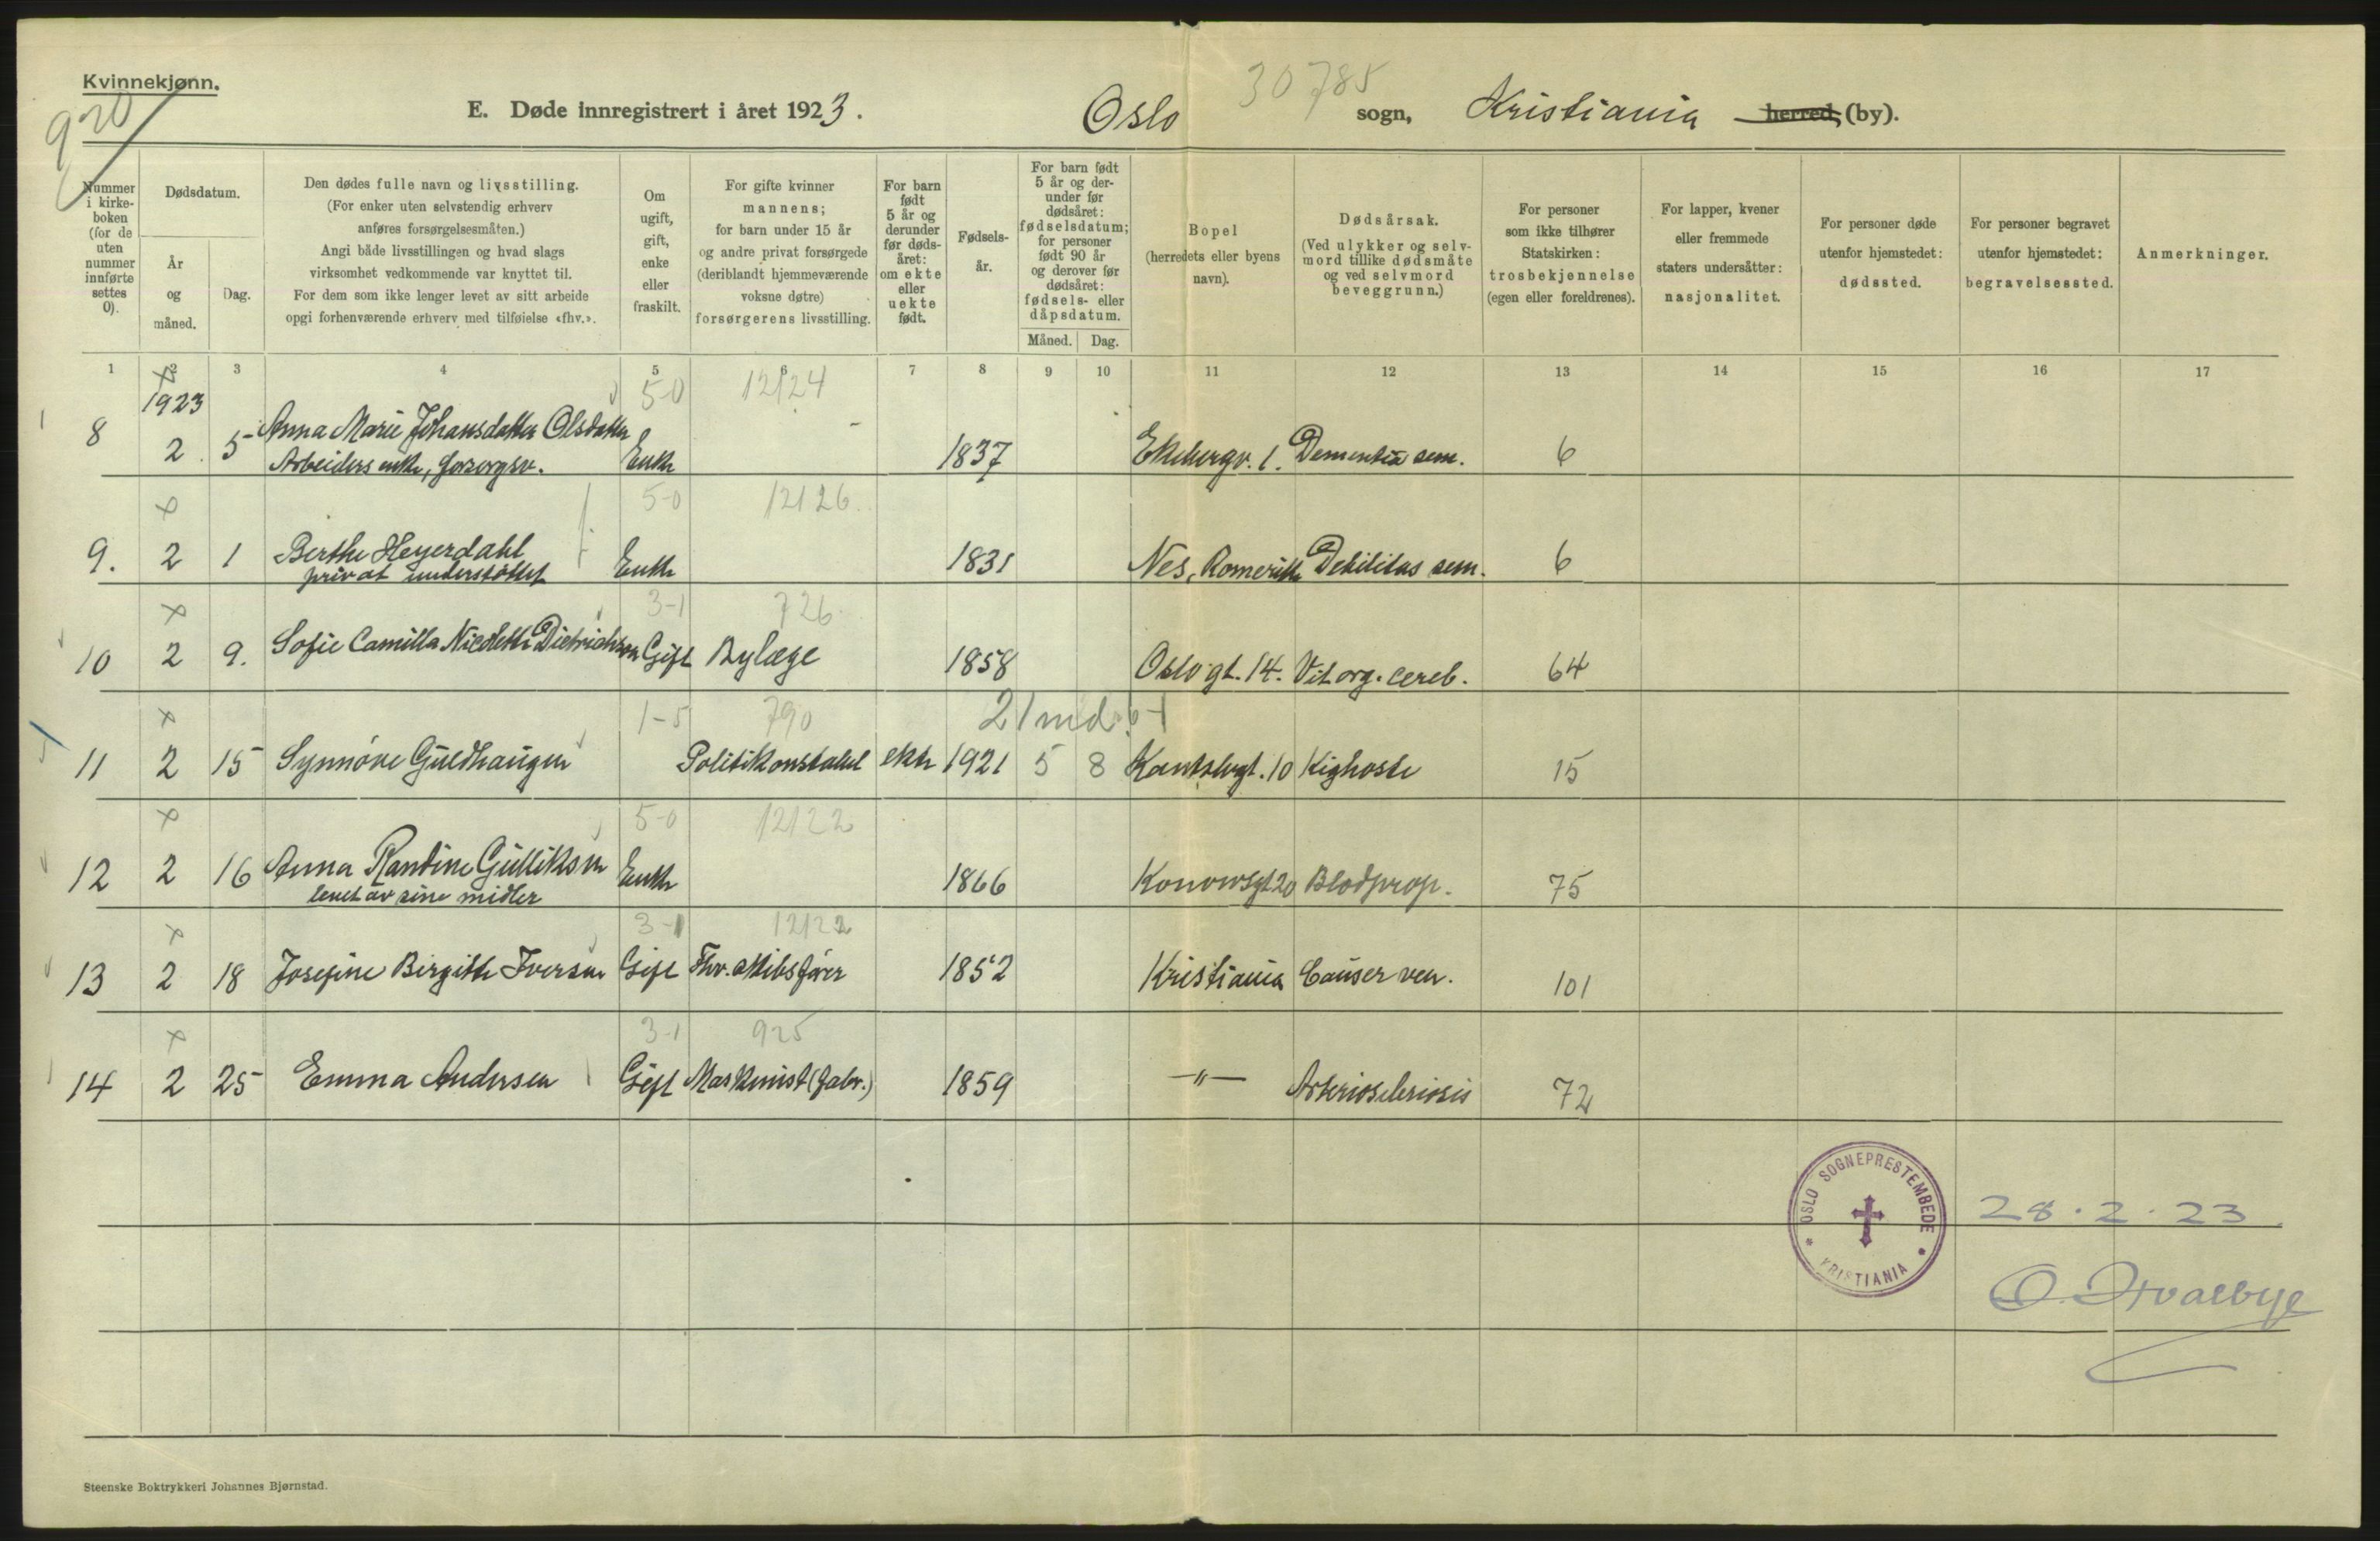 Kvinnekjønn.
920
E. Døde innregistrert i året 1923.
Oslo sogn, Kristiania herred, (by).
30785
Nummer i kirke- boken (for de uten nummer innførte settes 0).
Dødsdatum.
År og måned.
Dag.
Den dødes fulle navn og livsstilling.
(For enker uten selvstendig erhverv
anføres forsørgelsesmåten.)
Angi både livsstillingen og hvad slags
virksomhet vedkommende var knyttet til.
For dem som ikke lenger levet av sitt arbeide
opgi forhenværende erhverv med tilføielse «fhv.».
Om ugift, gift, enke eller fraskilt.
For gifte kvinner
mannens;
for barn under 15 år
og andre privat forsørgede
(deriblandt hjemmeværende
voksne døtre)
forsørgerens livsstilling.
For barn født 5 år og derunder før døds- året: om ekte eller uekte født.
Fødsels- år.
For barn født 5 år og der- under før dødsåret: fødselsdatum; for personer født 90 år og derover før dødsåret: fødsels- eller dåpsdatum.
Måned. Dag.
Bopel
(herredets eller byens
navn).
Dødsårsak.
(Ved ulykker og selv-
mord tillike dødsmåte
og ved selvmord
beveggrunn.)
For personer
som ikke tilhører
Statskirken:
trosbekjennelse
(egen eller foreldrenes).
For lapper, kvener
eller fremmede
staters undersåtter:
nasjonalitet.
For personer døde
utenfor hjemstedet:
dødssted.
For personer begravet
utenfor hjemstedet:
begravelsessted.
Anmerkninger.
1 2 3 4 5 6 7 8 9 10 11 12 13 14 15 16 17
1923 5-0 12124
8 2 5 Anna Marie Johansdatter Olsdatter Enke 1837 Ekebergv. 1. Dementia sen. 6
Arbeiders enke, forsorgsv.
5-0 12126
9. 2 1 Berthe Heyerdahl Enke 1831 Nes, Romerike Debilitas sen. 6
privat understøttet
3-1 726
10 2 9. Sofie Camilla Nicolette Dietrichson Gift Bylæge 1858 Oslogt. 14. Vit. org. cereb. 64
1-5 790 21 md. 6-1
11 2 15 Synnøve Guldhaugen Politikonstabel ekte 1921 5 8 Kantslergt. 10 Kighoste 15
5-0 12122
12 2 16 Anna Randine Gulliksen Enke 1866 Konowsgt 20 Blodprop. 75
levet av sine midler
3-1 12122
13 2 18 Josefine Birgitte Iversen Gift Fhv. skibsfører 1852 Kristiania Cancer ven. 101
3-1 925
14 2 25 Emma Andersen Gift Maskinist (fabr.) 1859 —„— Arteriosclerosis 72
OSLO SOGNEPRESTEMBEDE
KRISTIANIA
28.2.23.
O. Hvalbye
Steenske Boktrykkeri Johannes Bjørnstad.